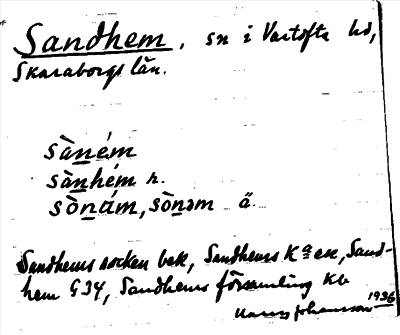 Sandhem, sn i Vartofta hd,
Skaraborgs län.
sàném
sànhém n.
sònám, sònəm ä.
Sandhems socken bek, Sandhems Ka ex, Sand-
hem G 34, Sandhems församling Kb
Hans Johansson 1936